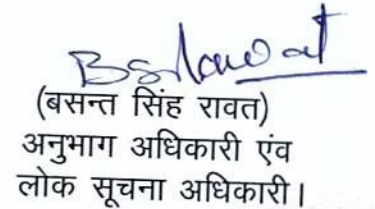 BSRawat
(बसन्त सिंह रावत)
अनुभाग अधिकारी एंव
लोक सूचना अधिकारी।